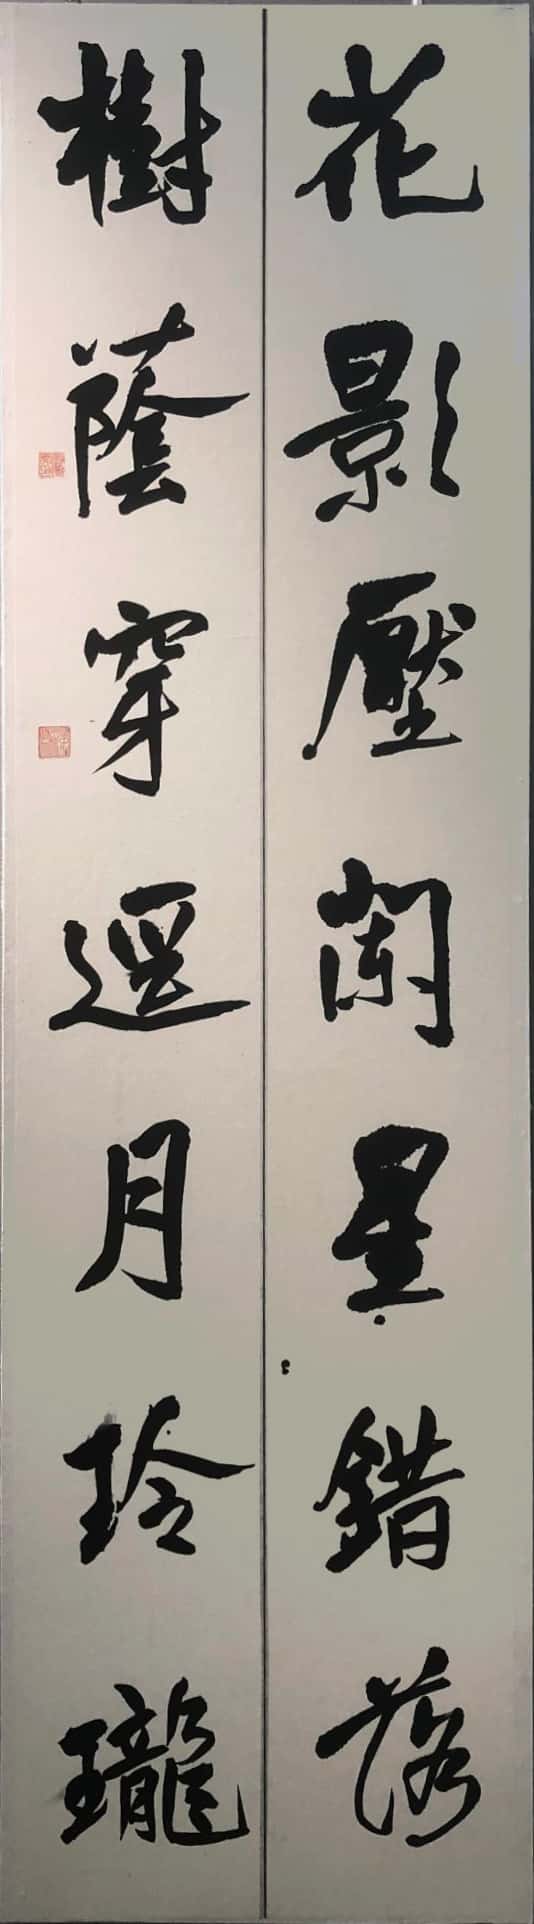 花影壓闌星錯落
樹蔭穿逕月玲瓏